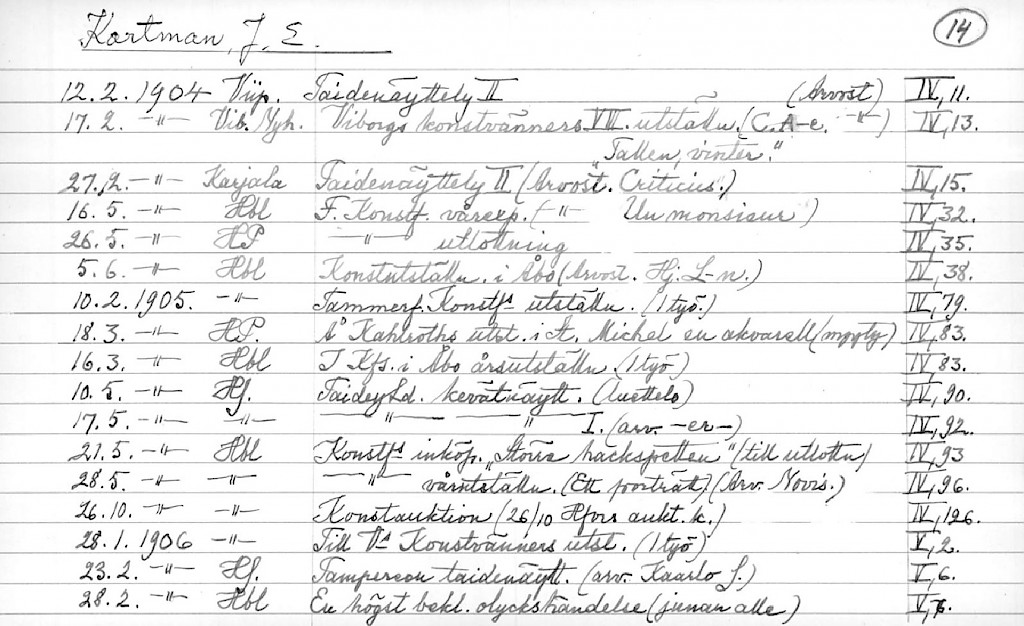 Kortman, J. E. 14
12.2.1904 Viip. Taidenäyttely II (Arvost) IV, 11.
17.2. -"- Vib. Nyh. Viborgs konstvänners VII. utställn. (C. A-e. -"-) IV, 13.
"Tallen, vinter."
27.2. -"- Karjala Taidenäyttely II (Arvost. Criticus.) IV, 15.
16.5. -"- Hbl F. Konstf. vårexp. (-"- Un monsieur) IV, 32.
26.5. -"- HP -"- utlottning IV, 35.
5.6. -"- Hbl Konstutställn. i Åbo (Arvost. Hj. L-n.) IV, 38.
10.2.1905. -"- Tammerf. Konstfs utställn. (1 työ.) IV, 79.
18.3. -"- HP. Å Kahlroths utst. i St. Michel en akvarell (myyty) IV, 83.
16.3. -"- Hbl I Kfs. i Åbo årsutställn. (1 työ) IV, 83.
10.5. -"- Hf. Taideyhd. kevätnäytt. (Luettelo) IV, 90.
17.5. -"- -"- -"- -"- I. (arv. -er-) IV, 92.
21.5. -"- Hbl Konstfs inköp. "Större hackspetten" (till utlottn) IV, 93
28.5. -"- -"- -"- vårutställn. (Ett porträtt) (Arv. Novis.) IV, 96.
26.10. -"- -"- Konstauktion (26/10 Hfors aukt. k.) IV, 126.
28.1.1906 -"- Till Vs Konstvänners utst. (1 työ) V, 2.
23.2. -"- Hf. Tampereen taidenäytt. (arv. Kaarlo S.) V, 6.
28.2. -"- Hbl En högst bekl. olyckshändelse (junan alle) V, 7.